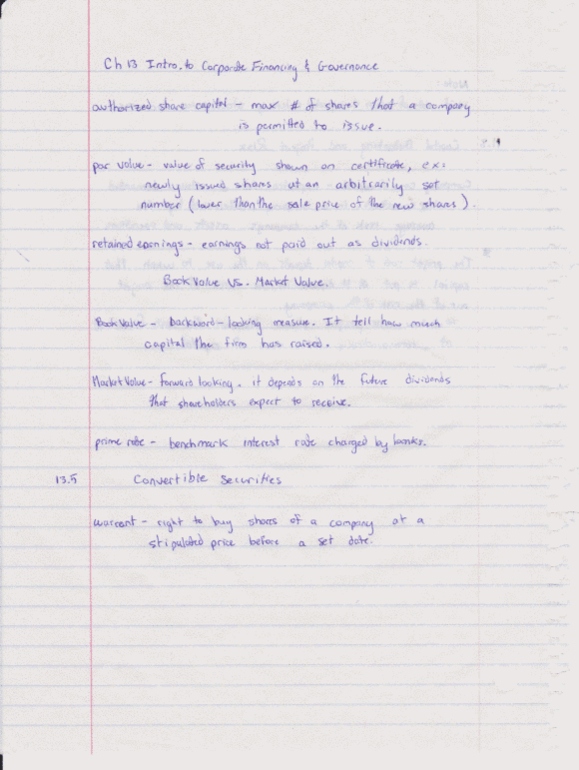 Ch 13 Intro. to Corporate Financing & Governance
authorized share capital - max # of shares that a company
is permitted to issue.
par value - value of security shown on certificate, ex:
newly issued shares at an arbitrarily set
number (lower than the sale price of the new shares).
retained earnings - earnings not paid out as dividends.
Book Value Vs. Market Value.
Book Value - backward-looking measure. It tell how much
capital the firm has raised.
Market Value - forward looking. it depends on the future dividends
that shareholders expect to receive.
prime rate - benchmark interest rate charged by banks.
13.5 Convertible Securities
warrant - right to buy shares of a company at a
stipulated price before a set date.